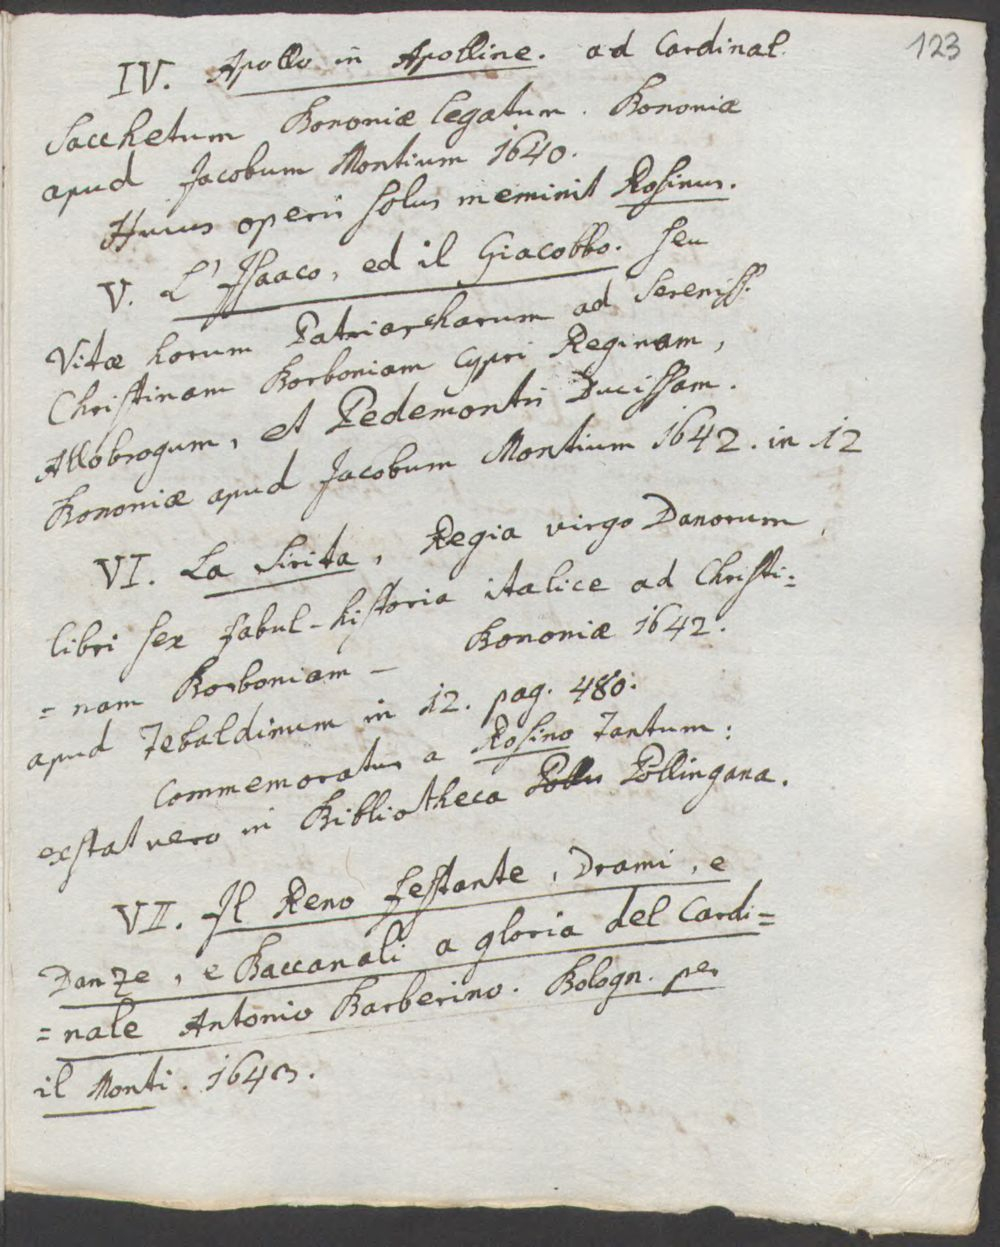 123
IV. Apollo in Apolline. ad Cardinal.
Sacchetum Bononiæ legatum. Bononiæ
apud Jacobum Montium 1640.
Huius operis solus meminit Rosinus.
V. L'Isaaco, ed il Giacobbo. seu
Vitæ horum Patriarcharum ad Sereniss.
Christinam Borboniam Cypri Reginam,
Allobrogum, et Pedemontii Ducissam.
Bononiæ apud Jacobum Montium 1642. in 12
VI. La Sirita, Regia virgo Danorum,
libri sex fabul-historia italice ad Christi=
=nam Borboniam – Bononiæ 1642.
apud Tebaldinum in 12. pag. 480.
Commemoratur a Rosino Tantum:
exstat vero in Bibliotheca Pollingana.
VII. Il Reno festante, Drami, e
Danze, e Baccanali a gloria del Cardi=
=nale Antonio Barberino. Bologn. per
il Monti. 1643.